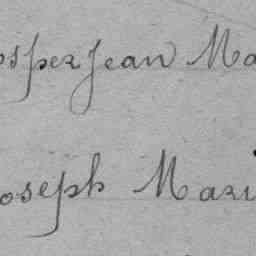 osper Jean Ma
oseph Mari